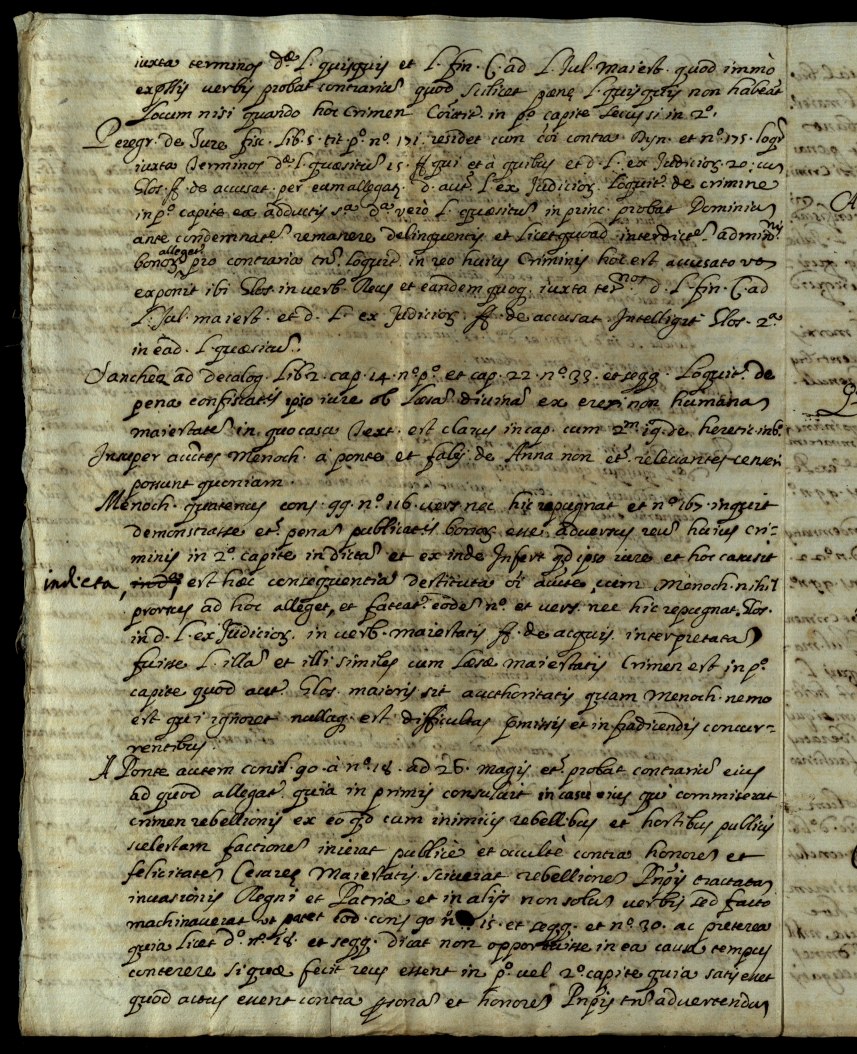 iuxta terminos d.ᵉ L. quisquis et L. fin. C. ad L. Jul. maiest. quod immò
expssis verbis probat contrariū quod scilicet pęnę L. quisquis non habeāt
Locum nisi quando hoc Crimen Com̄itit. in p.º capite secus si in 2.º
Peregr. de Jure fisc. Lib. 5. tit. p.º n.º 171. residet cum cōi contra Dyn. et n.º 175. loqr
iuxta Terminos d.ᵉ L. quæsitus 15. ff. qui et à quibus et d. L. ex Judicior. 20.
Glos. ff. de accusat. per eum allegat. d. aut.ᵐ L. ex Judicior. Loquit.ʳ de crimine
in p.º capite ex adductis s.ᵃ d.ᵃ verò L. quæsitus in princ. probat Dominiū
ante condemnat.ᵉ remanere delinquentis et licet quoad interdict.ᵉ admin.ⁿⁱˢ
bonor. alleget pro contraria tn̄ loquit. in reo huius Criminis hoc est accusato
exponit ibi Glos. in verb. Reus et eandem quoq. iuxta ter.ⁿᵒˢ d. L. fin. C. ad
L. Jul. maiest. et d. L. ex Judicior. ff. de accusat. Intelligit Glos. 2.ᵃ
in ead. L. quæsitus.
Sanchez ad decalog. Lib. 2. cap. 14. n.º p.º et cap. 22. n.º 33. et seqq. Loquit.ʳ de
pena confiscatis ipso iure ob Læsā diuinā ex eresi non humanā
maiestatē in quo casu Text. est clarus in cap. cum 2.ᵐ iq. de heretic. in 6.
Insuper auctes Menoch. à ponte et fabij de Anna non et.ᵐ releuantes censeri
possunt quoniam.
Menoch. quatenus cons. 99. n.º 116. vers. nec hic repugnat et n.º 167. inquit
demonstrasse et.ᵐ penā publicatis bonor. esse aduersus reū huius cri-
minis in 2.º capite indictā et ex inde Infert qd ipso iure et hoc casu sit
indicta, est hæc consequentia destituta oī aucte, cum Menoch. nihil
prorsus ad hoc alleget, et fateat.ʳ eodē n.º et vers. nec hic repugnat. Glos.
in d. L. ex Judicior. in verb. maiestatis ff. de acquis. interpretatā
fuisse L. illā et illi similes cum Læsæ maiestatis Crimen est in p.º
capite quod aut.ᵐ Glos. maioris sit aucthoritatis quam Menoch. nemo
est qui ignoret nullaq. est difficultas pmissis et infradicendis concur-
rentibus.
A Ponte autem consil. 90. à n.º 18. ad 26. magis et.ᵐ probat contrariū eius
ad quod allegat.ʳ quia in primis consuluit in casu eius qui commiserat
crimen rebellionis ex eo qd cum inimicis rebellibus et hostibus publicis
scelestam factionē inierat publicè et occultè contra honorē et
felicitatē Cesareę Maiestatis sciuerat rebellionē Pnp̄is tractatā
inuasionis Regni et Patriæ et in alijs non solū verbis sed facto
machinauerat ut patet eod. cons. 90 n. 15. et seqq. et n.º 30. ac preterea
quia licet d.º n.º 18. et seqq. dicat non opportuisse in ea causa tempus
conterere si quæ fecit reus essent in p.º vel 2.º capite quia satis esset
quod actus essent contra psonā et honorē Pnp̄is tn̄ aduertendū